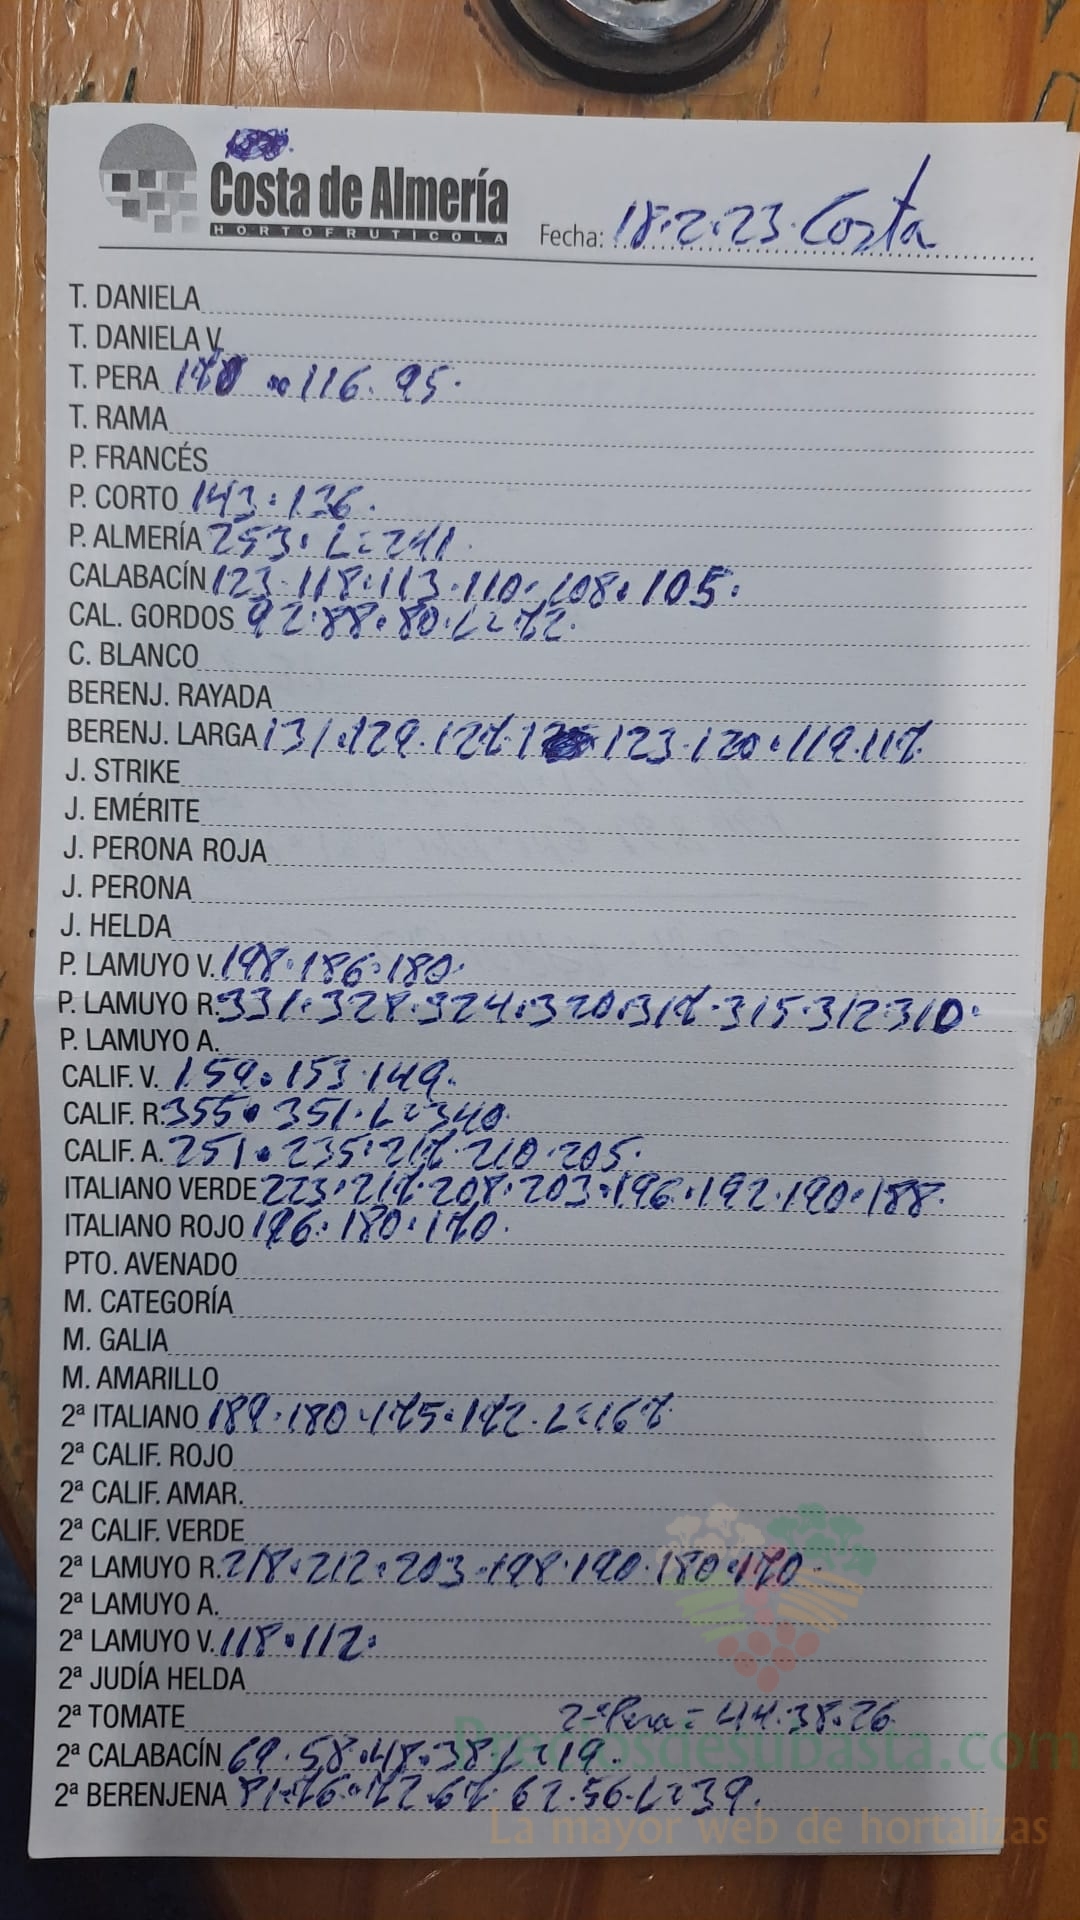 Costa de Almería
HORTOFRUTICOLA
Fecha: 18.2.23. Costa
T. DANIELA
T. DANIELA V.
T. PERA 116. 95.
T. RAMA
P. FRANCÉS
P. CORTO 143. 136.
P. ALMERÍA 253. L=241.
CALABACÍN 123. 118. 113. 110. 108. 105.
CAL. GORDOS 92. 88. 80. L=72.
C. BLANCO
BERENJ. RAYADA
BERENJ. LARGA 131. 129. 127. 123. 120. 119. 117.
J. STRIKE
J. EMÉRITE
J. PERONA ROJA
J. PERONA
J. HELDA
P. LAMUYO V. 198. 186. 180.
P. LAMUYO R. 331. 328. 324. 320. 317. 315. 312. 310.
P. LAMUYO A.
CALIF. V. 159. 153. 149.
CALIF. R. 355. 351. L=340.
CALIF. A. 251. 235. 217. 210. 205.
ITALIANO VERDE 223. 217. 208. 203. 196. 192. 190. 188.
ITALIANO ROJO 196. 180. 170.
PTO. AVENADO
M. CATEGORÍA
M. GALIA
M. AMARILLO
2ª ITALIANO 189. 180. 175. 172. L=167.
2ª CALIF. ROJO
2ª CALIF. AMAR.
2ª CALIF. VERDE
2ª LAMUYO R. 218. 212. 203. 198. 190. 180. 170.
2ª LAMUYO A.
2ª LAMUYO V. 118. 112.
2ª JUDÍA HELDA
2ª TOMATE 2ª Pera = 44. 38. 26.
2ª CALABACÍN 69. 58. 48. 38. L=19.
Preciosdesubasta.com
2ª BERENJENA 81. 76. 72. 67. 62. 56. L=39.
La mayor web de hortalizas